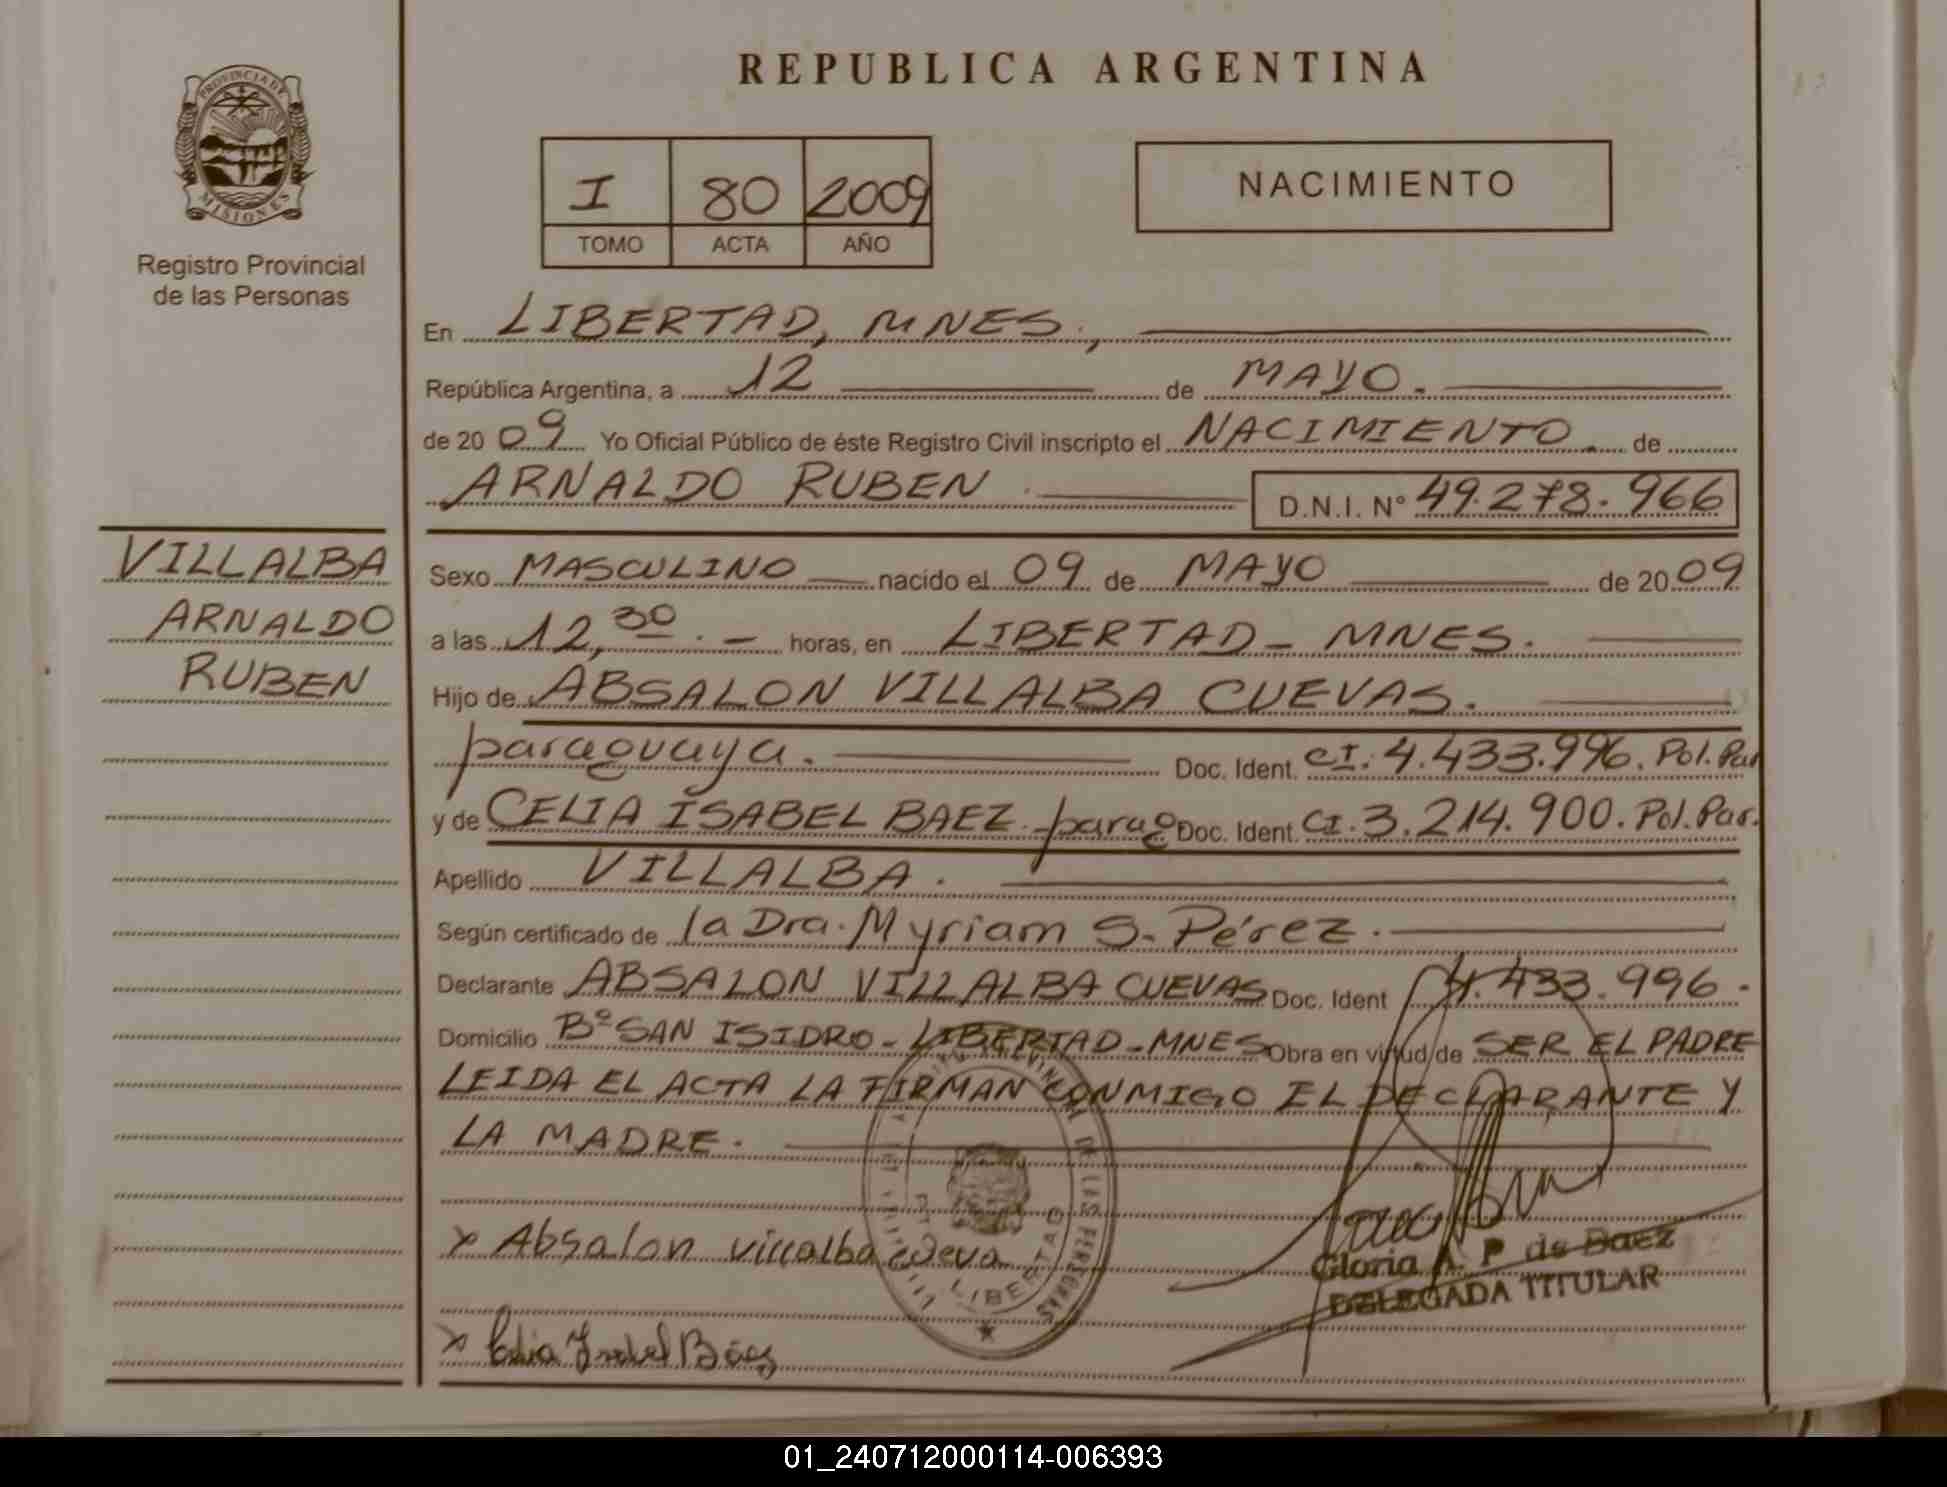 REPUBLICA ARGENTINA
PROVINCIA DE
MISIONES
Registro Provincial
de las Personas
I 80 2009
TOMO ACTA AÑO
NACIMIENTO
En LIBERTAD, MNES.,
República Argentina, a 12 de MAYO.
de 20 09 Yo Oficial Público de éste Registro Civil inscripto el NACIMIENTO de
ARNALDO RUBEN. D.N.I. N° 49.278.966
VILLALBA
ARNALDO
RUBEN
Sexo MASCULINO nacido el 09 de MAYO de 20 09
a las 12,30.- horas, en LIBERTAD - MNES.
Hijo de ABSALON VILLALBA CUEVAS.
paraguaya. Doc. Ident. CI. 4.433.996. Pol. Par
y de CELIA ISABEL BAEZ. parag Doc. Ident. CI. 3.214.900. Pol. Par.
Apellido VILLALBA.
Según certificado de la Dra. Myriam S. Pérez.
Declarante ABSALON VILLALBA CUEVAS Doc. Ident 4.433.996.
Domicilio B° SAN ISIDRO - LIBERTAD - MNES Obra en virtud de SER EL PADRE
LEIDA EL ACTA LA FIRMAN CONMIGO EL DECLARANTE Y
LA MADRE.
x Absalon villalba cueva
x Celia Isabel Báez
DE LAS PERSONAS
LIBERTAD
Gloria A. P de Baez
DELEGADA TITULAR
01_240712000114-006393